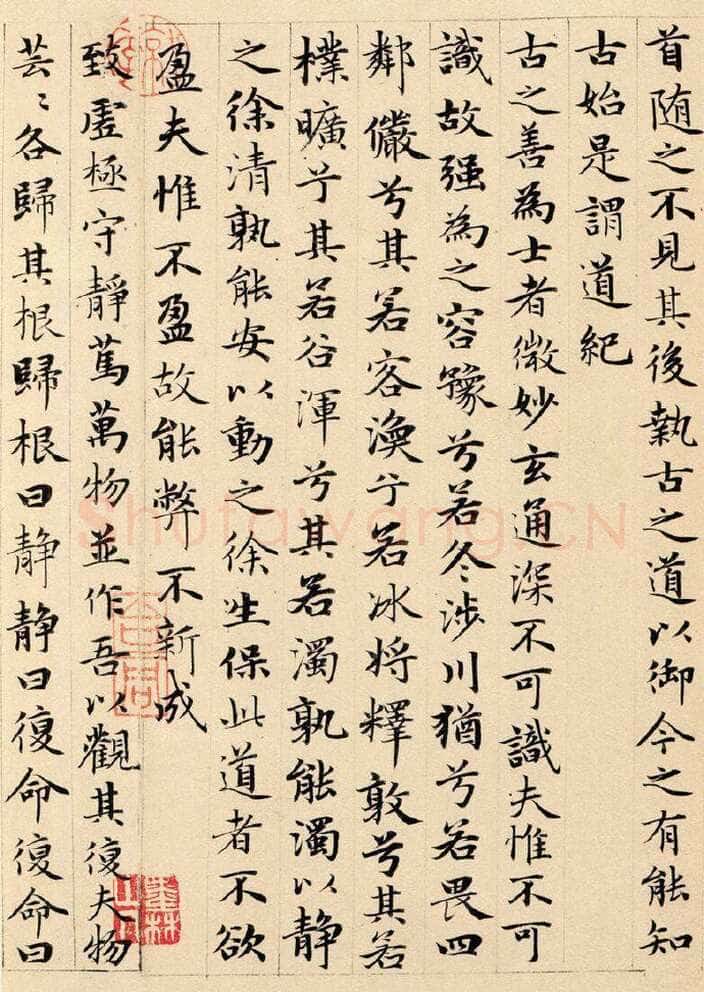 首随之不見其後執古之道以御今之有能知
古始是謂道紀
古之善為士者微妙玄通深不可識夫惟不可
識故强為之容豫兮若冬涉川猶兮若畏四
鄰儼兮其若客渙兮若冰将釋敦兮其若
樸曠兮其若谷渾兮其若濁孰能濁以静
之徐清孰能安以動之徐生保此道者不欲
盈夫惟不盈故能弊不新成
致虛極守靜篤萬物並作吾以觀其復夫物
芸〻各歸其根歸根曰静静曰復命復命曰
Shufawang.CN